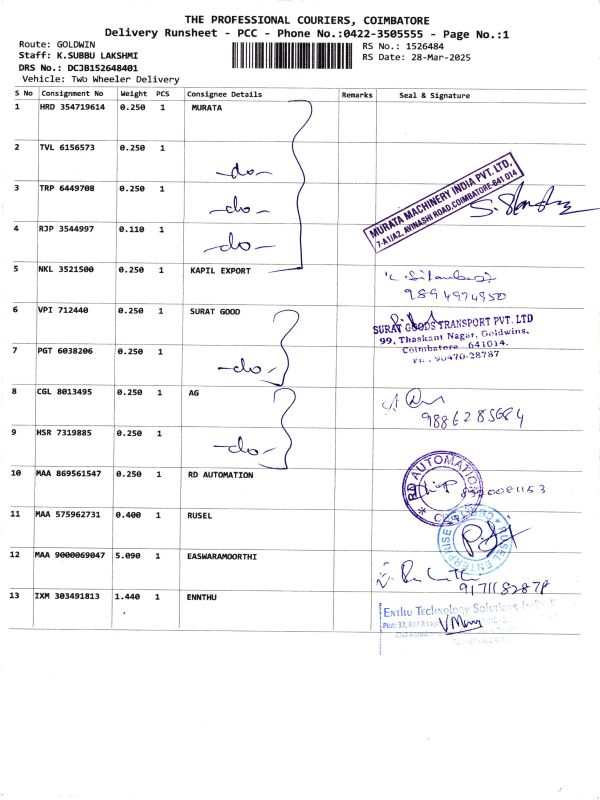 THE PROFESSIONAL COURIERS, COIMBATORE
Delivery Runsheet - PCC - Phone No.:0422-3505555 - Page No.:1
Route: GOLDWIN
RS No.: 1526484
Staff: K.SUBBU LAKSHMI
RS Date: 28-Mar-2025
DRS No.: DCJB152648401
Vehicle: Two Wheeler Delivery
S No Consignment No Weight PCS Consignee Details Remarks Seal & Signature
1 HRD 354719614 0.250 1 MURATA
2 TVL 6156573 0.250 1 -do-
3 TRP 6449708 0.250 1 -do-
MURATA MACHINERY INDIA PVT. LTD.
7-A1/A2, AVINASHI ROAD, COIMBATORE-641 014
4 RJP 3544997 0.110 1 -do-
5 NKL 3521500 0.250 1 KAPIL EXPORT
9894974950
6 VPI 712440 0.250 1 SURAT GOOD
SURAT GOODS TRANSPORT PVT. LTD
99, Thaskant Nagar, Goldwins,
Coimbatore 641014.
PH : 90470-28787
7 PGT 6038206 0.250 1 -do-
8 CGL 8013495 0.250 1 AG
9886285684
9 HSR 7319885 0.250 1 -do-
10 MAA 869561547 0.250 1 RD AUTOMATION
RD AUTOMATION
11 MAA 575962731 0.400 1 RUSEL
RUSEL ENTERPRISE
12 MAA 9000069047 5.090 1 EASWARAMOORTHI
9171182878
13 IXM 303491813 1.440 1 ENNTHU
ENTHU TECHNOLOGY SOLUTIONS
Plot: 32,